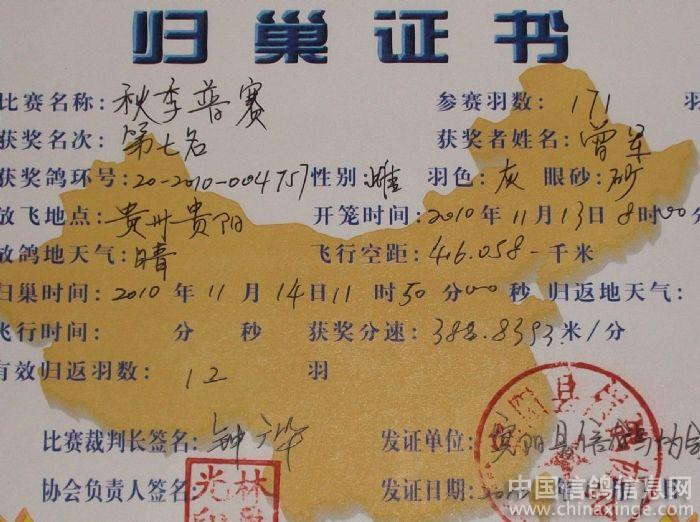 归巢证书
比赛名称: 秋季普赛 参赛羽数: 171 羽
获奖名次: 第七名 获奖者姓名: 曾军
获奖鸽环号: 20-2010-004757 性别: 雌 羽色: 灰 眼砂: 砂
放飞地点: 贵州贵阳 开笼时间: 2010年11月13日8时00分
放鸽地天气: 晴 飞行空距: 416.058 千米
归巢时间: 2010年11月14日11时50分00秒 归返地天气:
飞行时间: 分 秒 获奖分速: 388.8393米/分
有效归返羽数: 12 羽
比赛裁判长签名: 钟 华 发证单位: 阳县信鸽协会
协会负责人签名: 光林 发证日期:
中国信鸽信息网
www.chinaxinge.com